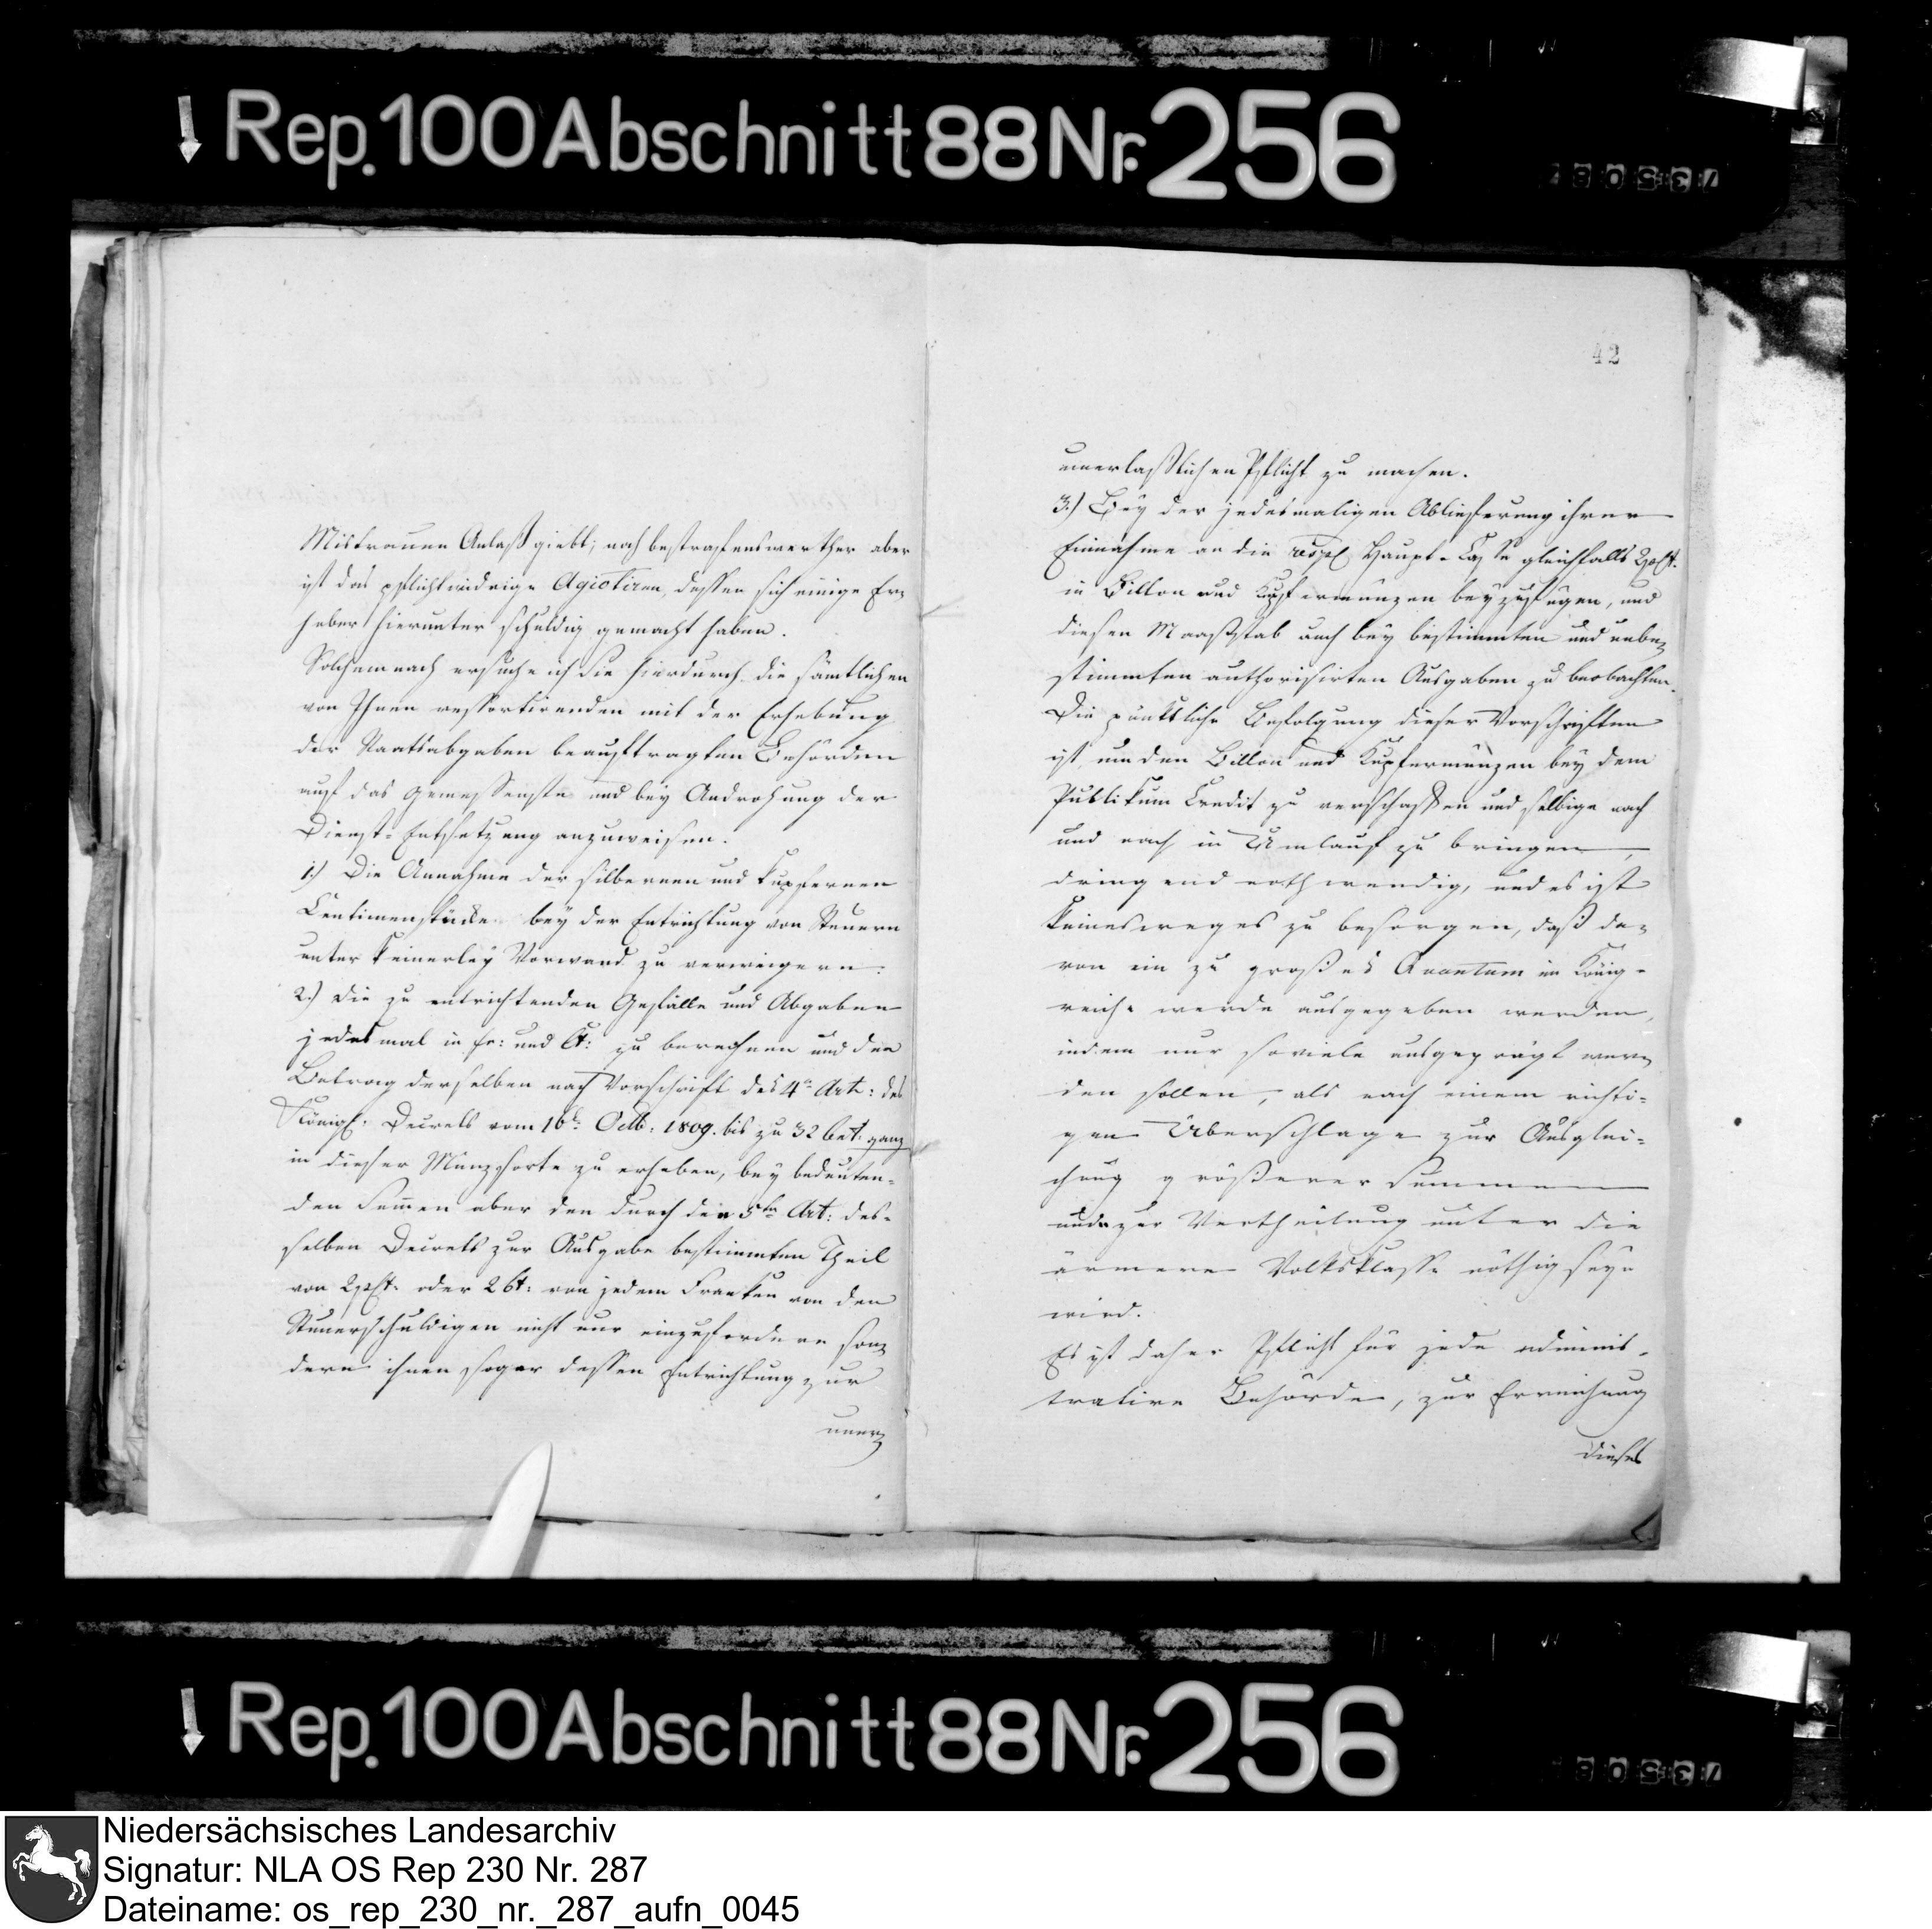 Rep. 100 Abschnitt 88 Nr. 256
Mistrauen Anlaß giebt; noch bestrafenswerther aber
ist das pflichtwidrige Agiotiren, dessen sich einige Er-
heber hierunter schuldig gemacht haben.
Solchemnach ersuche ich Sie hierdurch die sämtlichen
von Ihnen ressortirenden mit der Erhebung
der Staatsabgaben beauftragten Behörden
auf das Gemessenste und bey Androhung der
Dienst-Entsetzung anzuweisen.
1.) Die Annahme der silbernen und kupfernen
Centimenstücke bey der Entrichtung von Steuern
unter keinerley Vorwand zu verweigern.
2.) die zu entrichtenden Gefälle und Abgaben
jedesmal in fr: und Ct: zu berechnen und den
Betrag derselben nach Vorschrift des 4n Art: des
Königl. Decrets vom 16t: Octb: 1809. bis zu 32 Cet. ganz
in dieser Münzsorte zu erheben, bey bedeuten-
den Summen aber den durch den 5ten Art: des-
selben Decrets zur Ausgabe bestimmten Theil
von 2 pCt. oder 2 Ct: von jedem Franken von den
Steuerschuldigen nicht nur einzufordern son-
dern ihnen sogar dessen Entrichtung zur
uner-
42
unerlaßlichen Pflicht zu machen.
3.) Bey der jedesmaligen Ablieferung ihrer
Einnahme an die resp. Haupt-Casse gleichfalls 2 pCt.
in Billon und Kupfermünzen beyzufügen, und
diesen Maasstab auch bey bestimmten und unbe-
stimmten authorisirten Ausgaben zu beobachten.
Die pünktliche Befolgung dieser Vorschriften
ist, um den Billon und Kupfermünzen bey dem
Publikum Credit zu verschaffen und selbige nach
und nach in Umlauf zu bringen,
dringend nothwendig, und es ist
keinesweges zu besorgen, daß da-
von ein zu großes Quantum im König-
reiche werde ausgegeben werden,
indem nur soviele ausgeprägt wer-
den sollen, als nach einem richti-
gen Überschlage zur Ausglei-
chung größerer Summen
und zur Vertheilung unter die
ärmere Volksklasse nöthig seyn
wird.
Es ist daher Pflicht für jede adminis-
trative Behörde, zur Erreichung
dieses
Rep. 100 Abschnitt 88 Nr. 256
Niedersächsisches Landesarchiv
Signatur: NLA OS Rep 230 Nr. 287
Dateiname: os_rep_230_nr._287_aufn_0045